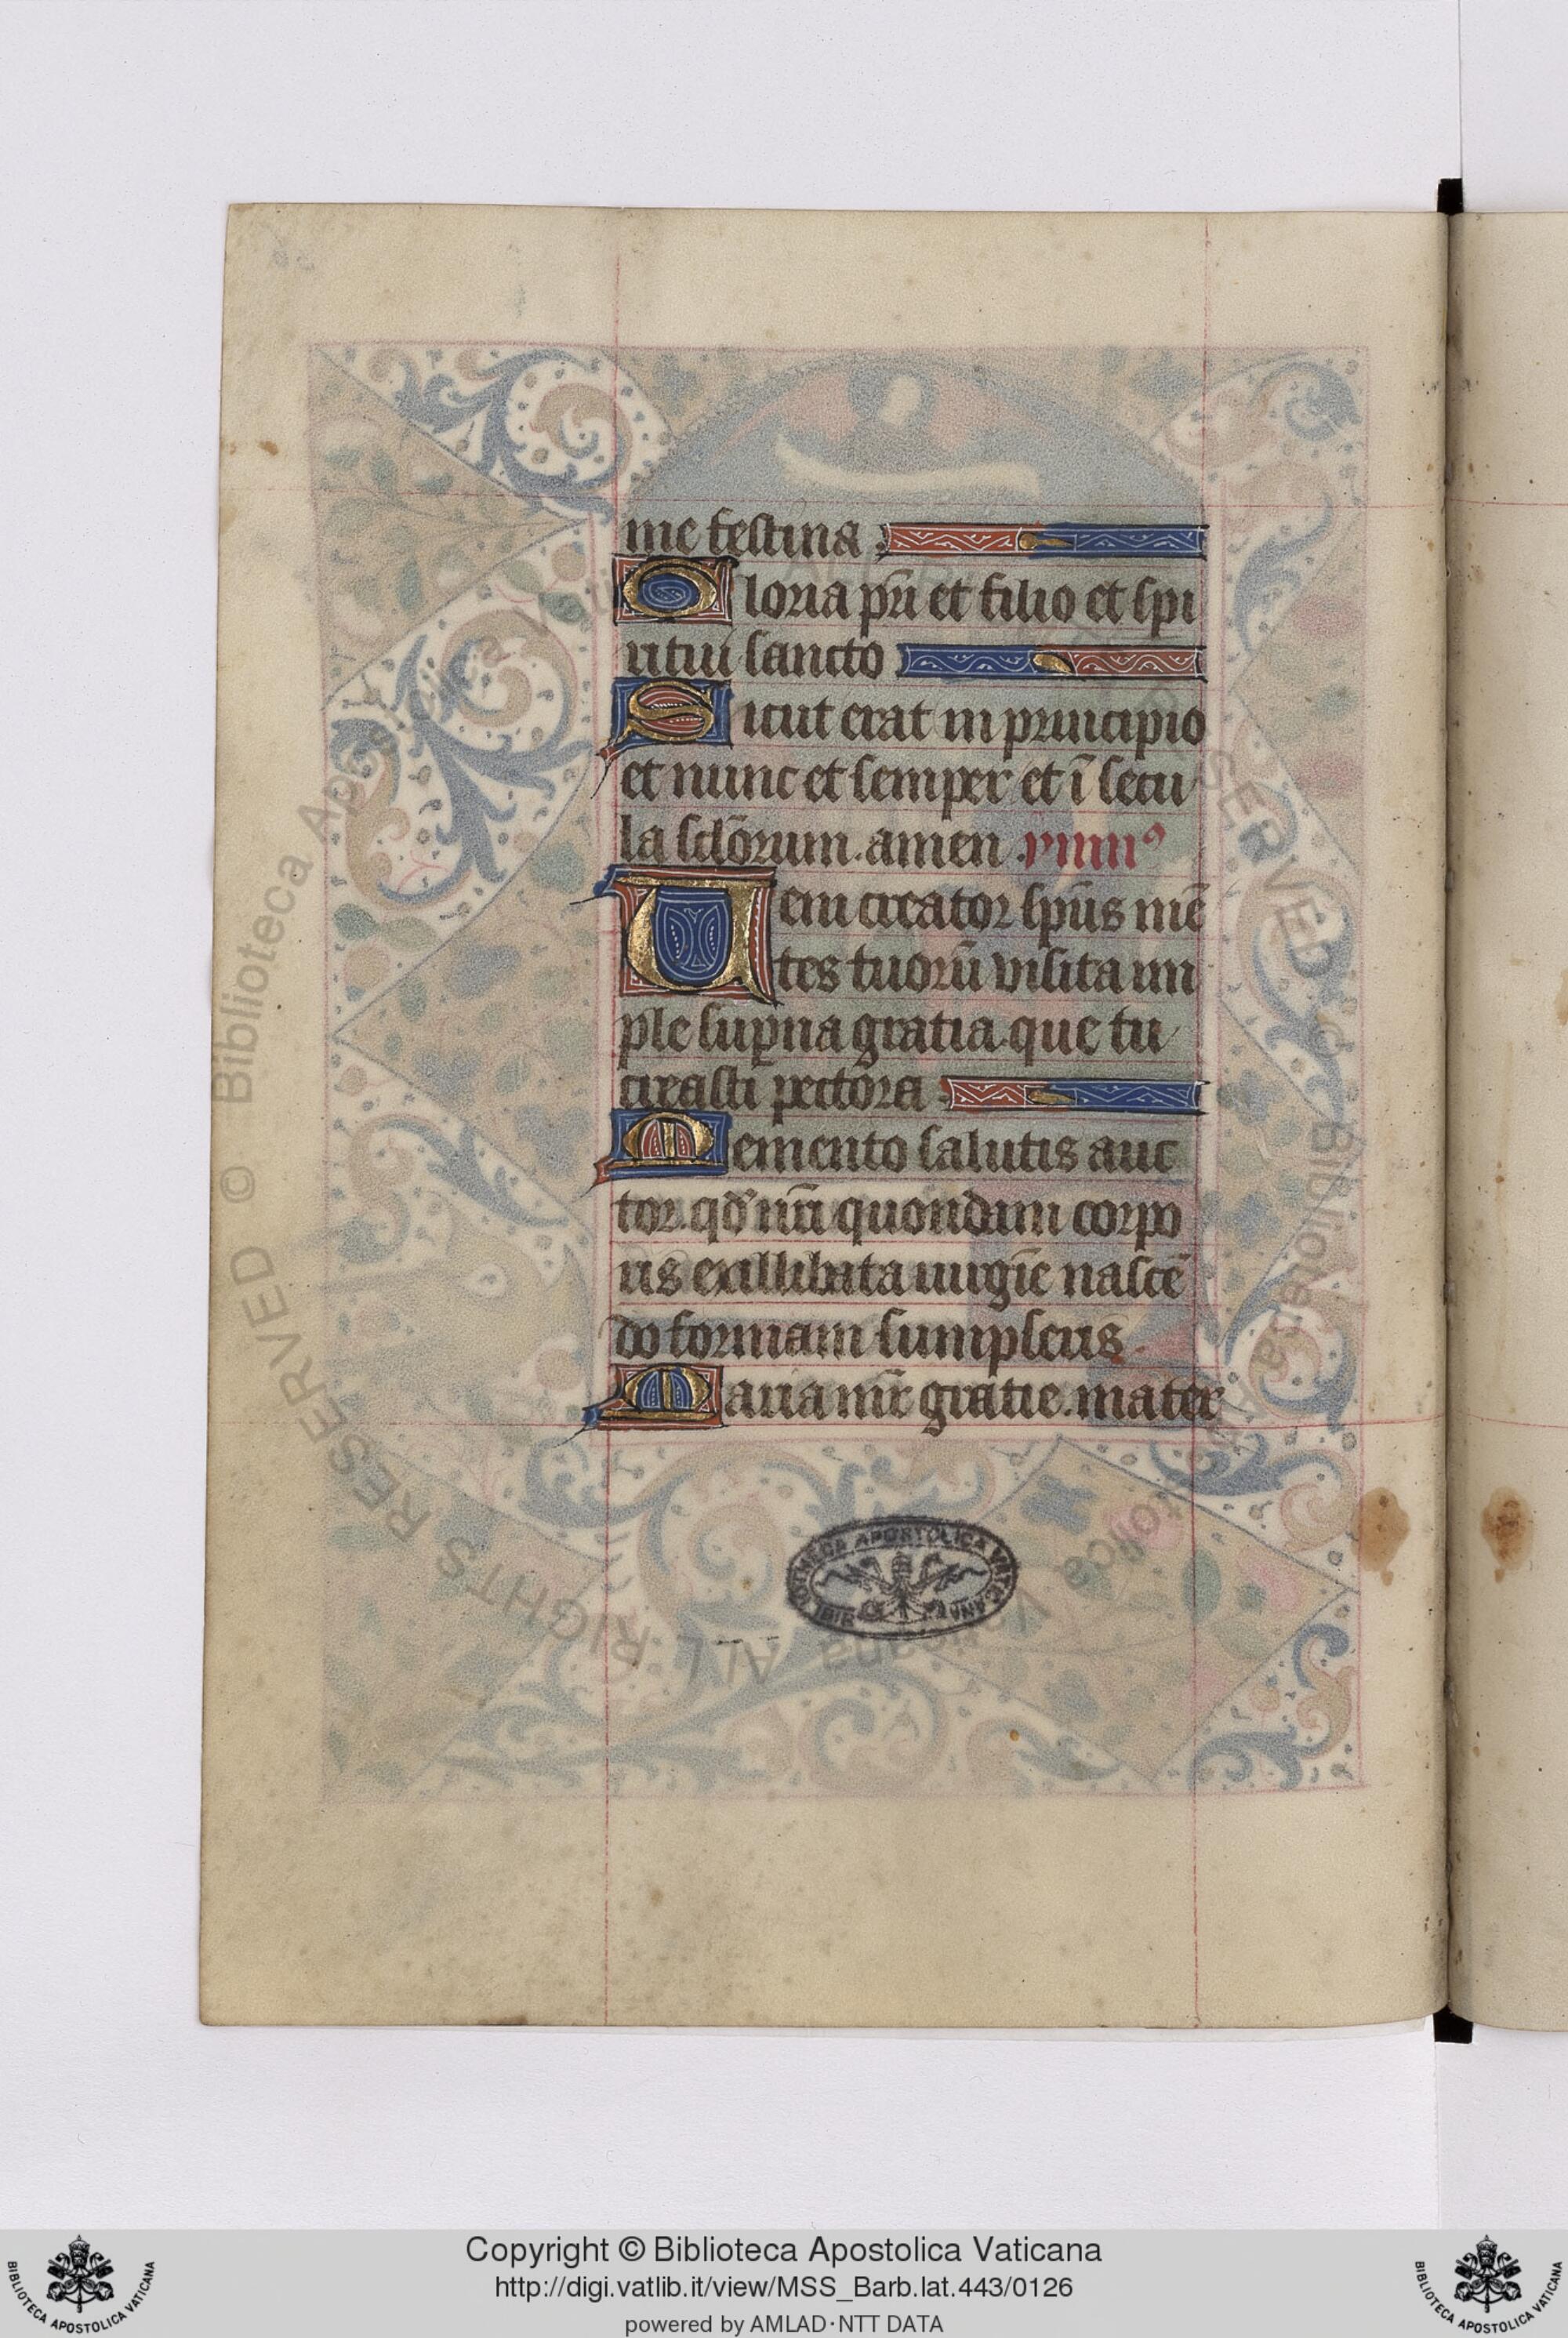 me festina
Gloria pr̄i et filio et spi
ritui sancto
Sicut erat in principio
et nunc et semper et ī secu
la sclōrum. amen. ymnꝰ
Ueni creator sp̄us mē
tes tuorū visita im
ple suꝑna gratia. que tu
creasti pectora
Memento salutis auc
tor. qđ nr̄i quondam corpo
ris exillibata uirgīe nascē
do formam sumpseris.
Maria mr̄ gratie. mater
BIBLIOTHECA APOSTOLICA VATICANA
© Biblioteca Apostolica Vaticana ALL RIGHTS RESERVED
Copyright © Biblioteca Apostolica Vaticana
http://digi.vatlib.it/view/MSS_Barb.lat.443/0126
powered by AMLAD·NTT DATA
BIBLIOTECA APOSTOLICA VATICANA
BIBLIOTECA APOSTOLICA VATICANA